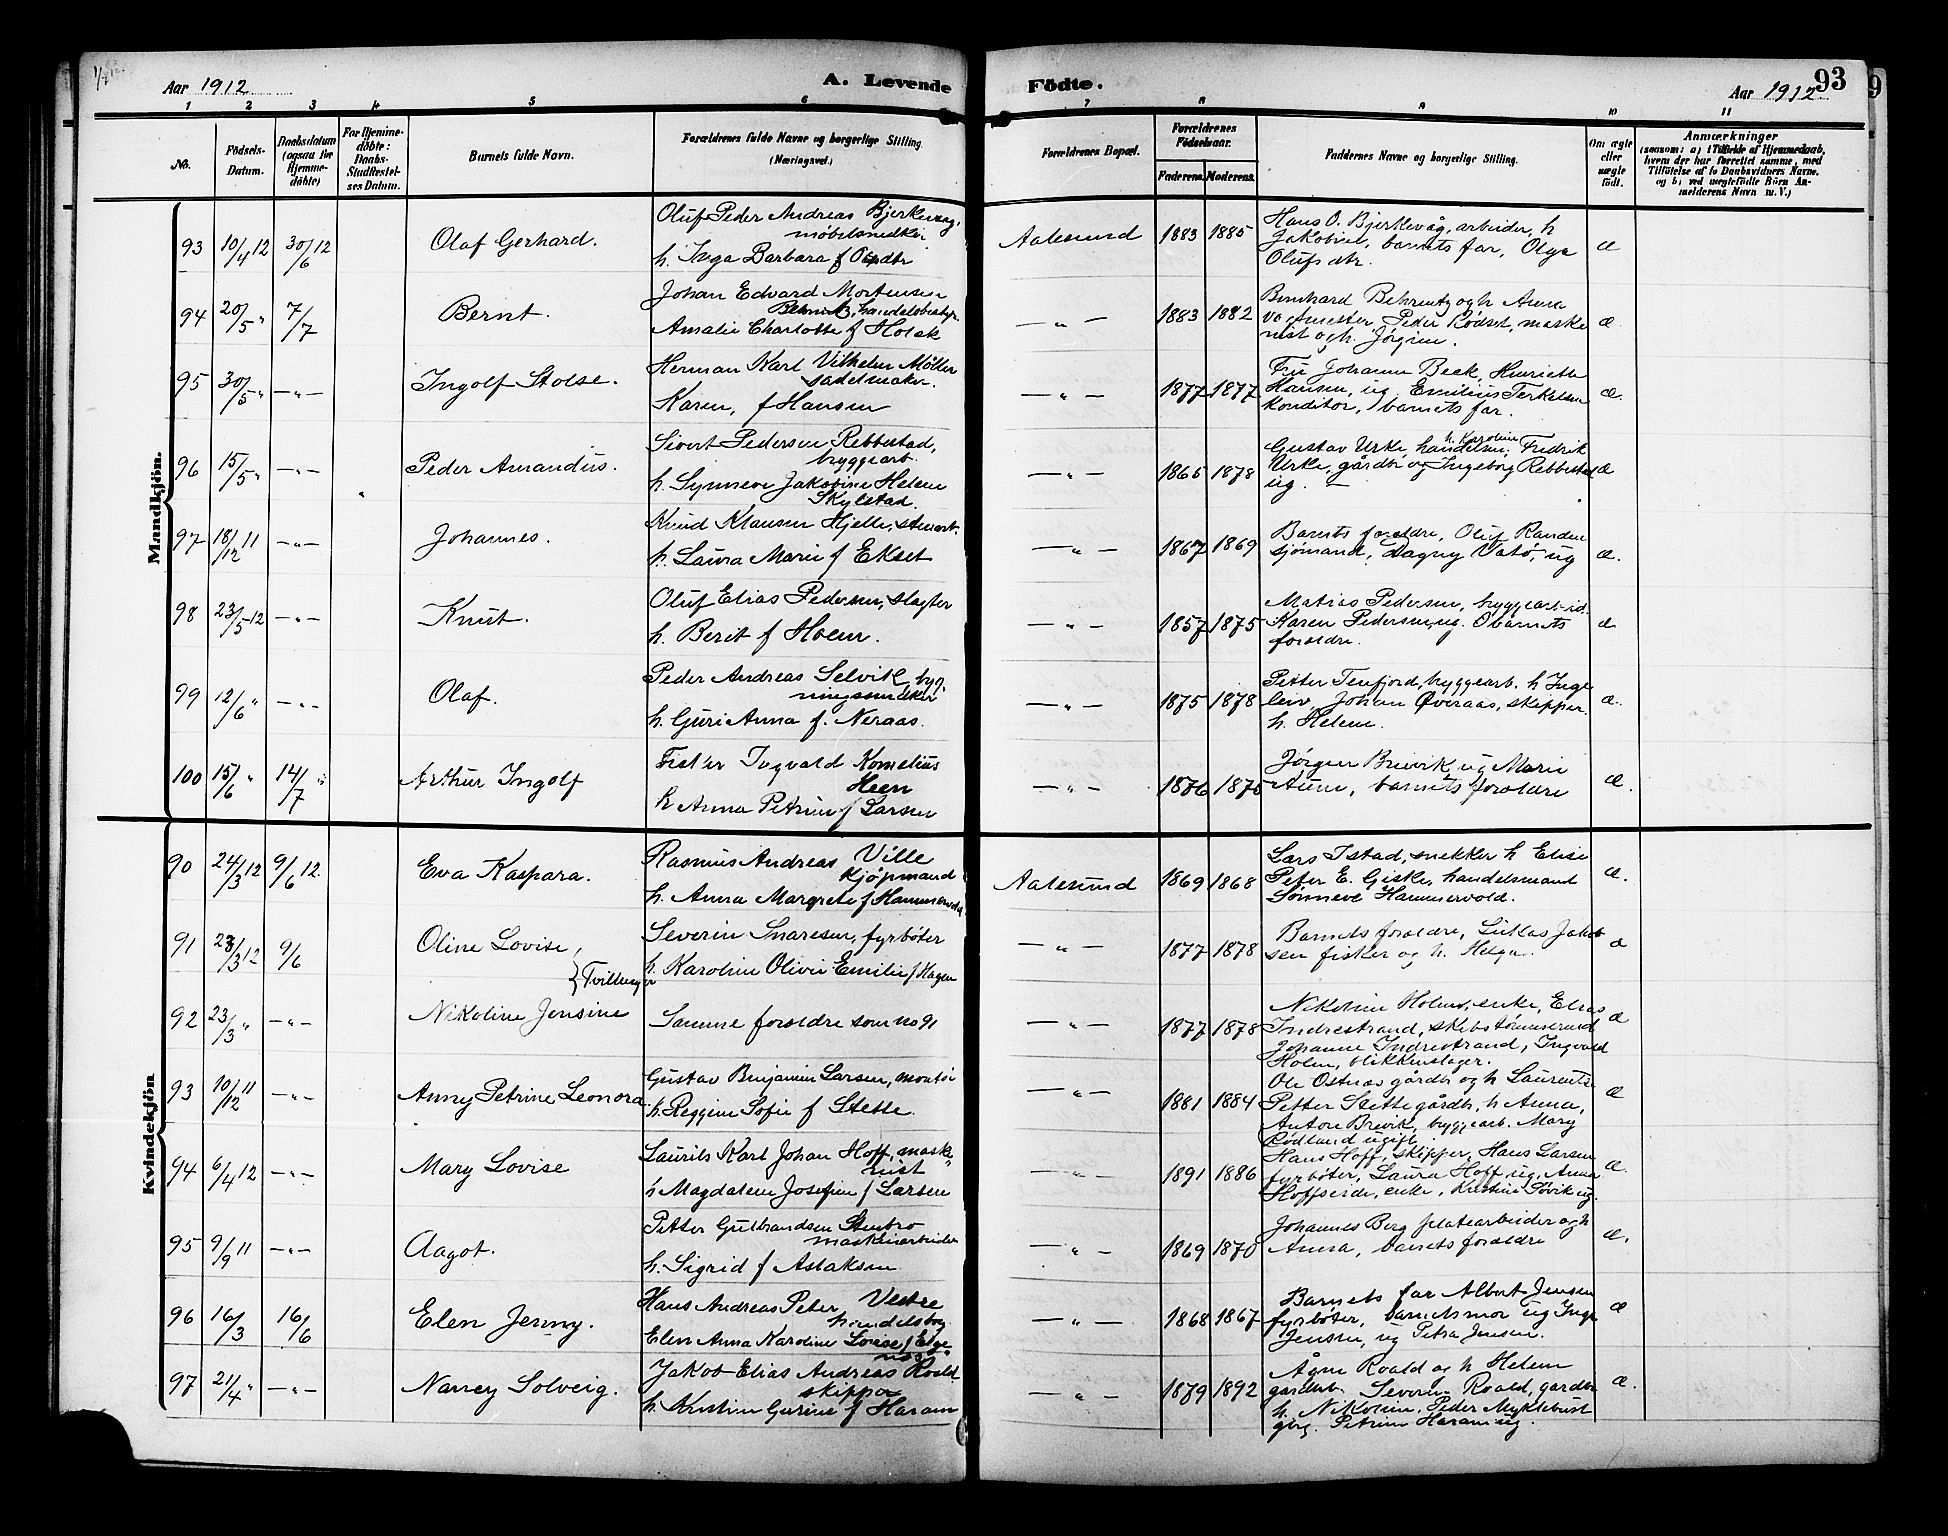 Aar 1912
A. Levende
Födte.
Aar 1912
93
1 2 3 4 5 6 7 8 9 10 11
No.
Födsels-Datum.
Daabsdatum (ogsaa for Hjemme-döbte)
For Hjemme-döbte: Daabs-Stadfæstelses Datum.
Barnets fulde Navn.
Forældrenes fulde Navne og borgerlige Stilling (Næringsvei.)
Forældrenes Bopæl.
Forældrenes Födselsaar.
Faderens. Moderens.
Faddernes Navne og borgerlige Stilling.
Om ægte eller uægte födt.
Anmærkninger
(saasom: a) i Tilfælde af Hjemmedaab,
hvem der har forrettet samme, med
Tilföielse af to Daabsvidners Navne.
og b) ved uægtefödte Börn An-
melderens Navn m. V.)
Mandkjön.
93 10/4 12 30/6 12 Olaf Gerhard.
Oluf Peder Andreas Bjerkevag,
møbelsnedker
h. Inga Barbara f
Aalesund 1883 1885
Hans O. Bjerkevåg, arbeider, h
Jakobine, barnets far, Olga
Olufsdtr.
æ
94 20/5 " 7/7 Bernt.
Johan Edvard Mortensen
Amalie Charlotte f Holsk
— " — 1883 1882
Bernhard Behrentz og h Anna
Peder Rødset, maski
nist og h. Jørgine.
æ.
95 30/5 " — " — Ingolf Stolse.
Herman Karl Vilhelm Møller
sadelmaker.
Karen, f Hansen
— " — 1877 1877
Fru Johanne Beck, Henriette
Hansen, ug, Emilius Terkelsen
konditor, barnets far.
æ.
96 15/5 " — " — Peder Amandus.
Sivert Pedersen Rebbestad,
bryggearb.
h. Synneve Jakobine Helene
Skylstad.
— " — 1865 1878
h. Karoline
Gustav Urke, handelsm, Fredrik
Urke, gårdbr og Ingeborg Rebbestad
ug. —
æ
97 18/12 11 — " — Johannes.
Knud Klausen Hjelle, stuert.
h. Laura Marie f Ekset
— " — 1867 1869
Barnets foreldre, Oluf Randen
sjømand, Dagny Vatø, ug
æ.
98 23/5 12 — " — Knut.
Oluf Elias Pedersen, slagter
h. Berit f Hoem.
— " — 1857 1875
Matias Pedersen, bryggearb.
Karen Pedersen, ug. barnets
foreldre.
æ
99 12/6 " — " — Olaf.
Peder Andreas Selvik, byg-
ningssnedker
h. Guri Anna f. Neraas.
— " — 1875 1878
Petter Tenfjord, bryggearb. h Inge
leiv, Johan Øveraas, skipper.
h. Helene.
æ.
100 15/6 " 14/7 " Arthur Ingolf
Fisker Ingvald Kornelius
Heen
h Anna Petrine f Larsen
— " — 1876 1875
Jørgen Breivik, ug Marie
Aune, barnets foreldre
æ.
Kvindekjön
90 24/3 12 9/6 12. Eva Kaspara.
Rasmus Andreas Ville
kjøpmand
h. Anna Margrete f Hammervold
Aalesund 1869 1868
Lars Istad, snekker h Elise
Peter E. Giske, handelsmand
Sønneve Hammervold.
æ.
91 23/3 12 9/6 Oline Lovise,
{Tvillinger
Severin Snaresen, fyrbøter
h. Karoline Olivie Emilie f Hagen
— " — 1877 1878
Barnets foreldre, Lukas Jakob
sen fisker og h. Helga.
æ
92 23/3 " — " — Nikoline Jensine
Samme foreldre som no 91
— " — 1877 1878
Nikoline Holm, enke, Elias
Indrestrand, skibstømmermd
Johanne Indrestrand, Ingvald
Holm, blikkenslager.
æ
93 10/12 11 — " — Anny Petrine Leonora.
Gustav Benjamin Larsen, montør
h. Reggine Sofie f Stette.
— " — 1881 1884
Ole Ostnæs gårdbr og h Laurentse
Petter Stette gårdbr, h Anna,
Anton Breivik, bryggearb. Mary
Rødland ugift.
æ
94 6/4 12 — " — Mary Lovise
Laurits Karl Johan Hoff, maski-
nist
h Magdalene Josefine f Larsen
— " — 1891 1886
Hans Hoff, skipper, Hans Larsen
fyrbøter, Laura Hoff ug, Anna
Hoffseide, enke, Kristine Søvik ug.
æ.
95 9/9 11 — " — Aagot.
Petter Gulbrandsen Stenbro
maskinarbeider
h. Sigrid f Aslaksen
— " — 1869 1870
Johannes Berg platearbeider og h
Anna, barnets foreldre
æ.
96 16/3 16/6 Elen Jenny.
Hans Andreas Peter Vestre
handelsbog.
Elen Anna Karoline Lovise f
1868 1867
Barnets far Albert Jensen
fyrbøter, barnets mor ug Inga
Jensen, ug Petra Jensen.
æ
97 21/4 " — " — Nancy Solveig.
Jakob Elias Andreas Roald
skipper
h. Kristine Gurine f Haram
— " — 1879 1892
Ågne Roald og h Helene
gardbr. Severin Roald, gardbr
h. Nikoline, Peder Myklebust
gbrg. Petrine Haram ug.
æ.